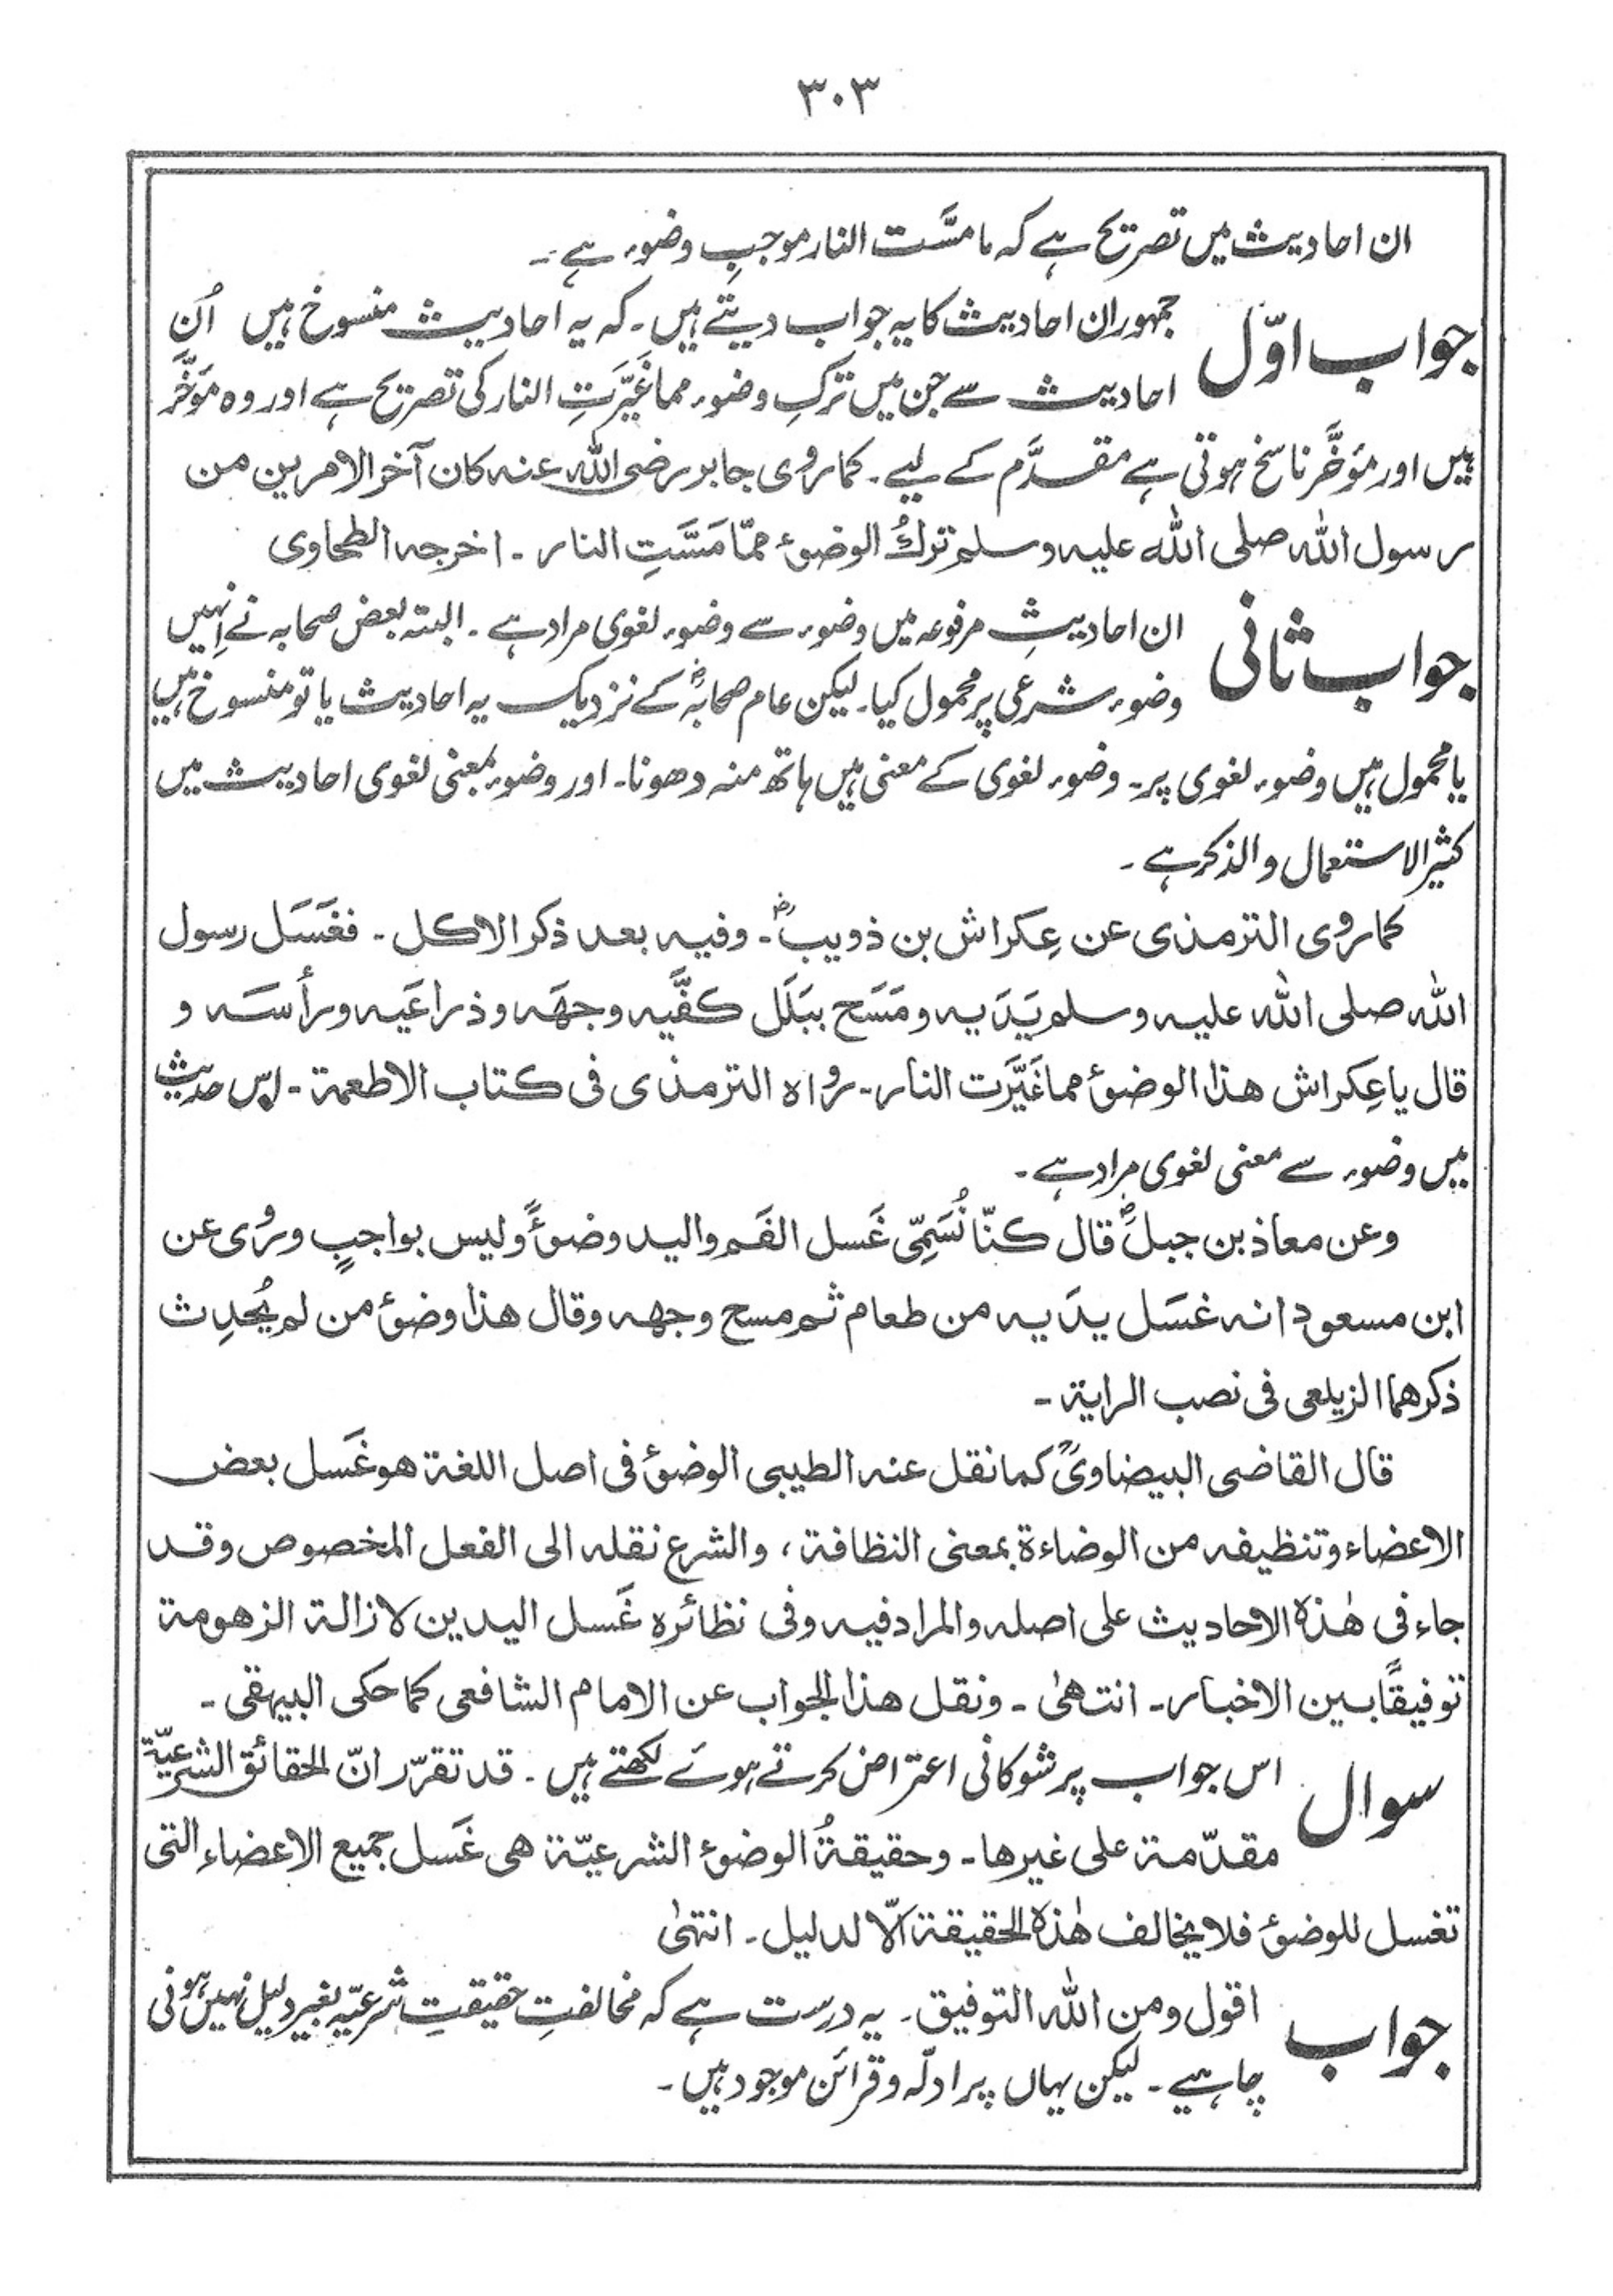 ۳۰۳
ان احادیث میں تصریح ہے کہ ما مسَّت النار موجبِ وضوء ہے ۔
جواب اوّل جمہور ان احادیث کا یہ جواب دیتے ہیں ۔ کہ یہ احادیث منسوخ ہیں اُن
احادیث سے جن میں ترکِ وضوء مما غَیَّرَتِ النار کی تصریح ہے اور وہ مؤخَّر
ہیں اور مؤخَّر ناسخ ہوتی ہے مقدَّم کے لیے ۔ کما روی جابر رضی اللہ عنہ کان آخر الامرین من
رسول اللہ صلی اللہ علیہ وسلم ترکُ الوضوء ممّا مَسَّتِ النار ۔ اخرجہ الطحاوی
جواب ثانی ان احادیثِ مرفوعہ میں وضوء سے وضوء لغوی مراد ہے ۔ البتہ بعض صحابہ نے اِنہیں
وضوء شرعی پر محمول کیا ۔ لیکن عام صحابہؓ کے نزدیک یہ احادیث یا تو منسوخ ہیں
یا محمول ہیں وضوء لغوی پر ۔ وضوء لغوی کے معنی ہیں ہاتھ منہ دھونا ۔ اور وضوء بمعنی لغوی احادیث میں
کثیر الاستعمال والذکر ہے ۔
کما روی الترمذی عن عِکراش بن ذویبؓ ۔ وفیہ بعد ذکر الاکل ۔ فغَسَل رسول
اللہ صلی اللہ علیہ وسلم یَدَیہ ومَسَح ببَلَل کفَّیہ وجھَہ وذراعَیہ ورأسَہ و
قال یا عِکراش ھذا الوضوءُ مما غَیَّرَت النار ۔ رواہ الترمذی فی کتاب الاطعمۃ ۔ اِس حدیث
میں وضوء سے معنی لغوی مراد ہے ۔
وعن معاذ بن جبلؓ قال کنّا نُسَمِّی غَسل الفَم والید وضوءً ولیس بواجبٍ ورُوی عن
ابن مسعود انہ غسَل یدَیہ من طعام ثم مسح وجھہ وقال ھذا وضوءُ من لم یُحدِث
ذکرھما الزیلعی فی نصب الرایۃ ۔
قال القاضی البیضاویؒ کما نقل عنہ الطیبی الوضوءُ فی اصل اللغۃ ھو غَسل بعض
الاعضاء وتنظیفہ من الوضاءۃ بمعنی النظافۃ ، والشرع نقلہ الی الفعل المخصوص وقد
جاء فی ھٰذہ الاحادیث علی اصلہ والمراد فیہ وفی نظائرہ غَسل الیدین لازالۃ الزھومۃ
توفیقًا بین الاخبار ۔ انتھیٰ ۔ ونقل ھذا الجواب عن الامام الشافعی کما حکی البیہقی ۔
سوال اس جواب پر شوکانی اعتراض کرتے ہوئے لکھتے ہیں ۔ قد تقرّر انّ الحقائق الشرعیّۃ
مقدّمۃ علی غیرھا ۔ وحقیقۃُ الوضوء الشرعیّۃ ھی غَسل جمیع الاعضاء التی
تغسل للوضوء فلا یخالف ھٰذہ الحقیقۃ الّا لدلیل ۔ انتہیٰ
جواب اقول ومن اللہ التوفیق ۔ یہ درست ہے کہ مخالفتِ حقیقتِ شرعیّہ بغیر دلیل نہیں ہونی
چاہیے ۔ لیکن یہاں پر ادلّہ وقرائن موجود ہیں ۔